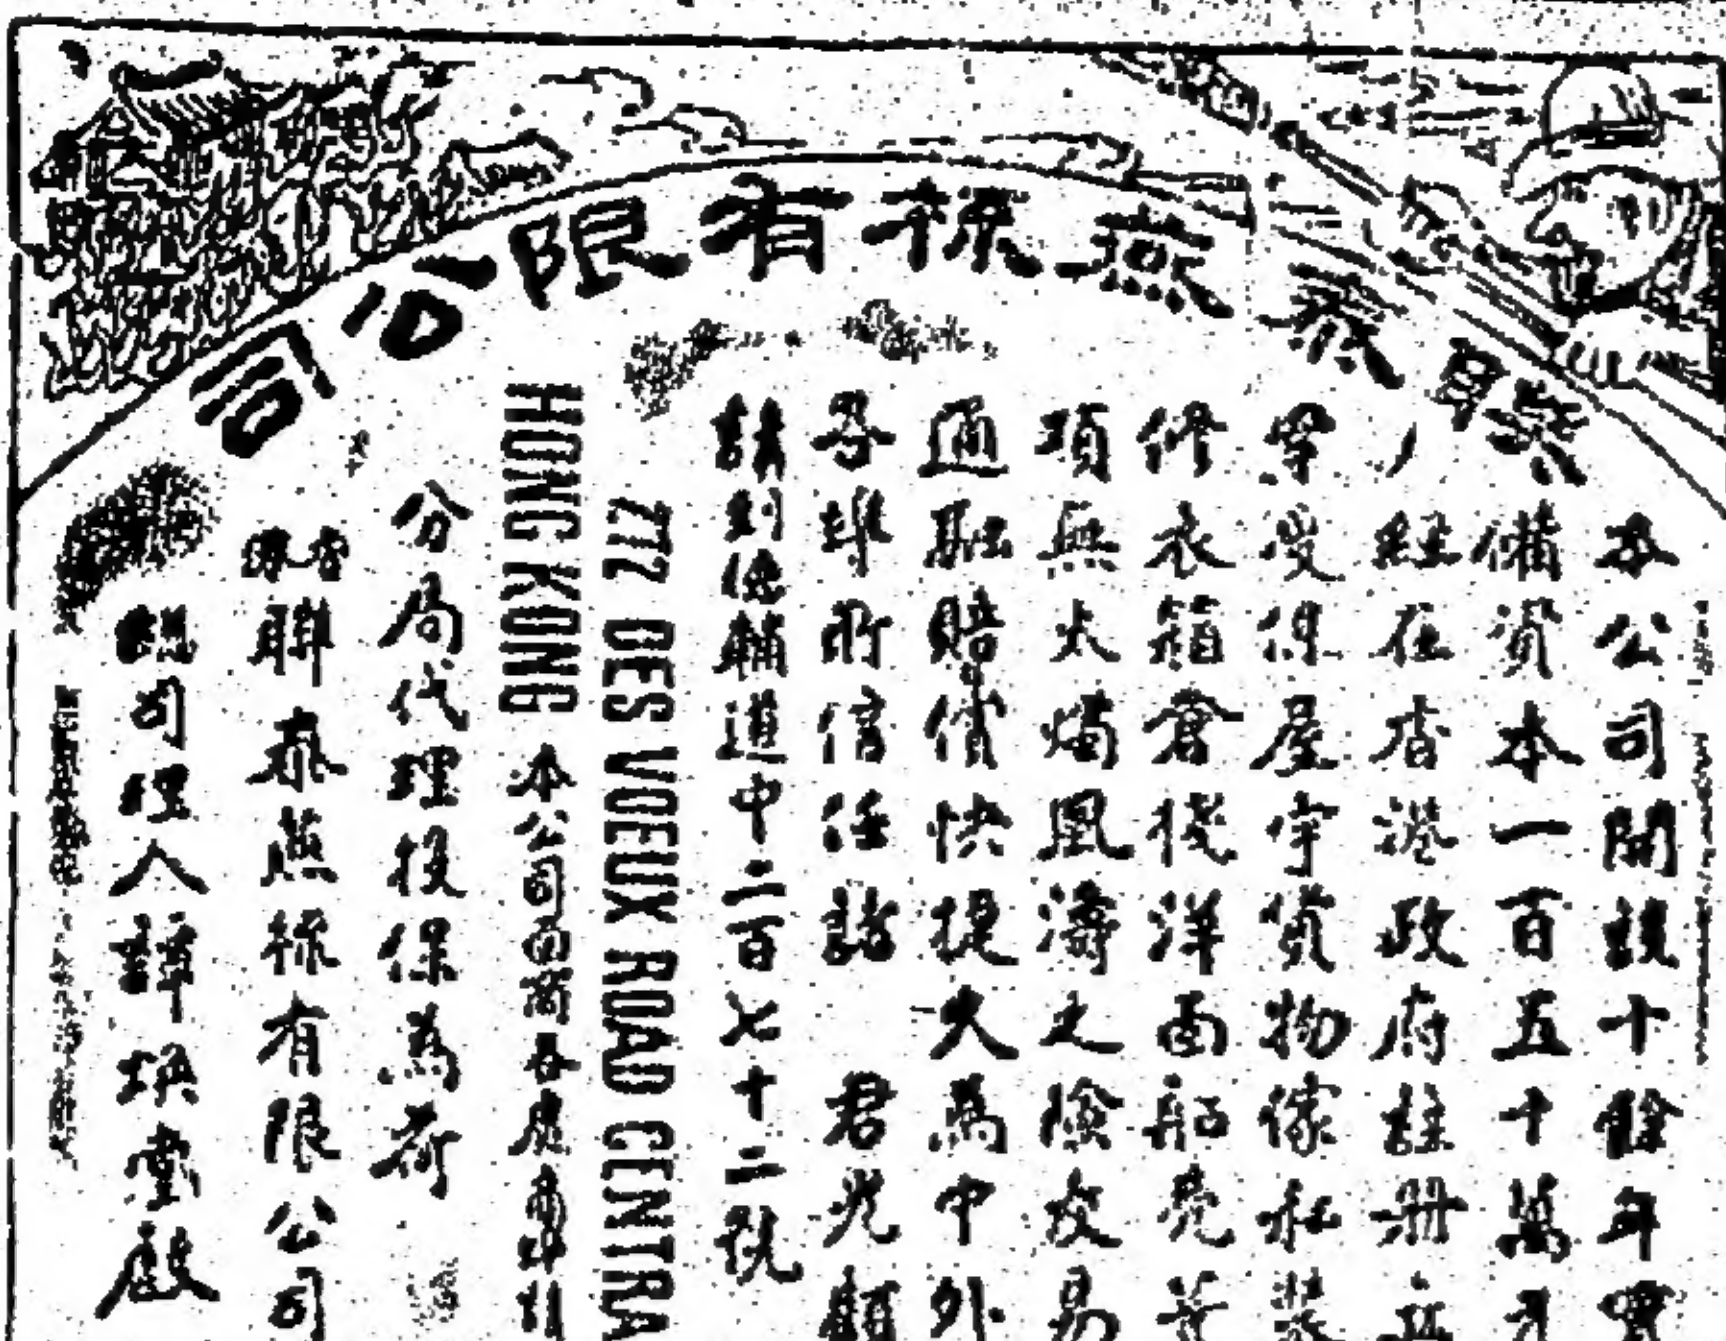 聯泰燕梳有限公司
本公司開設十餘年實
備資本一百五十萬元
經在香港政府註冊立
穿受保屋宇貨物傢私裝
修衣箱倉棧洋面船壳等
項無太燭風濤之險交易
通融賠償快捷久為中外
孚準所信任諸 君光顧
請到德輔道中二百七十二號
272 DES VOEUX ROAD CENTRA
HONG KONG 本公司各處
分局代理投保為荷
聯泰燕梳有限公司
總司理人譚煥堂啟